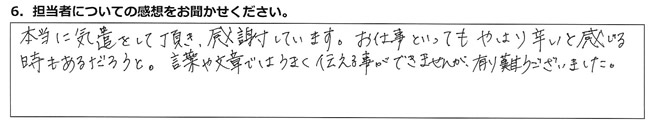 6．担当者についての感想をお聞かせください。
本当に気遣をして頂き、感謝しています。お仕事といってもやはり辛いと感じる
時もあるだろうと。言葉や文章ではうまく伝える事ができませんが、有り難うございました。